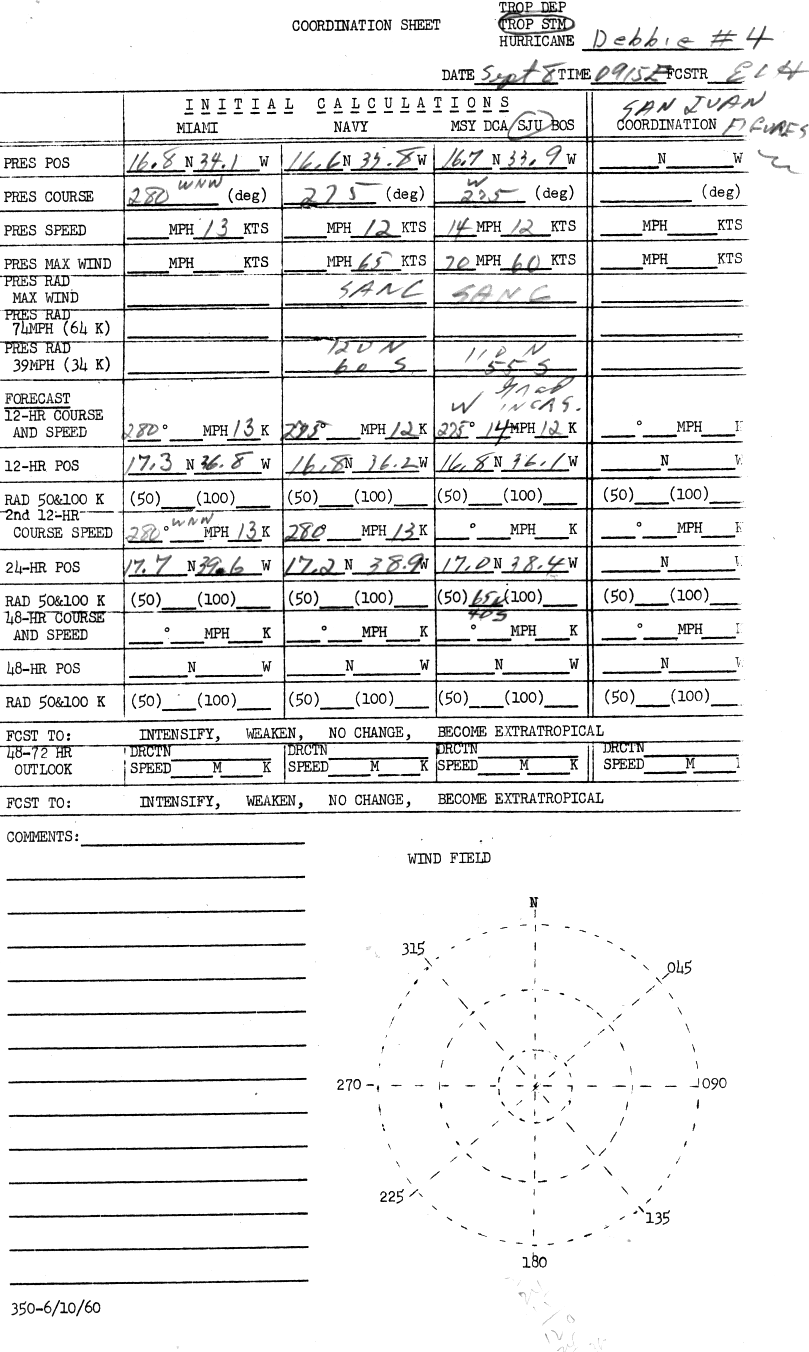 TROP DEP
COORDINATION SHEET TROP STM
HURRICANE Debbie #4
DATE Sept 8 TIME 0915Z FCSTR ELH
INITIAL CALCULATIONS SAN JUAN
MIAMI NAVY MSY DCA SJU BOS COORDINATION FIGURES
PRES POS 16.8 N 34.1 W 16.6 N 33.8 W 16.7 N 33.9 W N W
WNW W
PRES COURSE 280 (deg) 275 (deg) 275 (deg) (deg)
PRES SPEED MPH 13 KTS MPH 12 KTS 14 MPH 12 KTS MPH KTS
PRES MAX WIND MPH KTS MPH 65 KTS 70 MPH 60 KTS MPH KTS
PRES RAD
MAX WIND SANC SANC
PRES RAD
74MPH (64 K)
PRES RAD 120 N 110 N
39MPH (34 K) 60 S 55 S
FORECAST W INCRS.
12-HR COURSE
AND SPEED 280° MPH 13 K 275° MPH 12 K 275° 14 MPH 12 K ° MPH
12-HR POS 17.3 N 36.8 W 16.8 N 36.2 W 16.8 N 36.1 W N W
RAD 50&100 K (50) (100) (50) (100) (50) (100) (50) (100)
2nd 12-HR WNW
COURSE SPEED 280° MPH 13 K 280 MPH 13 K ° MPH K ° MPH K
24-HR POS 17.7 N 39.6 W 17.2 N 38.9 W 17.0 N 38.4 W N W
RAD 50&100 K (50) (100) (50) (100) (50) (100) (50) (100)
48-HR COURSE 40S
AND SPEED ° MPH K ° MPH K ° MPH K ° MPH
48-HR POS N W N W N W N W
RAD 50&100 K (50) (100) (50) (100) (50) (100) (50) (100)
FCST TO: INTENSIFY, WEAKEN, NO CHANGE, BECOME EXTRATROPICAL
48-72 HR DRCTN DRCTN DRCTN DRCTN
OUTLOOK SPEED M K SPEED M K SPEED M K SPEED M
FCST TO: INTENSIFY, WEAKEN, NO CHANGE, BECOME EXTRATROPICAL
COMMENTS:
WIND FIELD
N
315 045
270 090
225 135
180
350-6/10/60